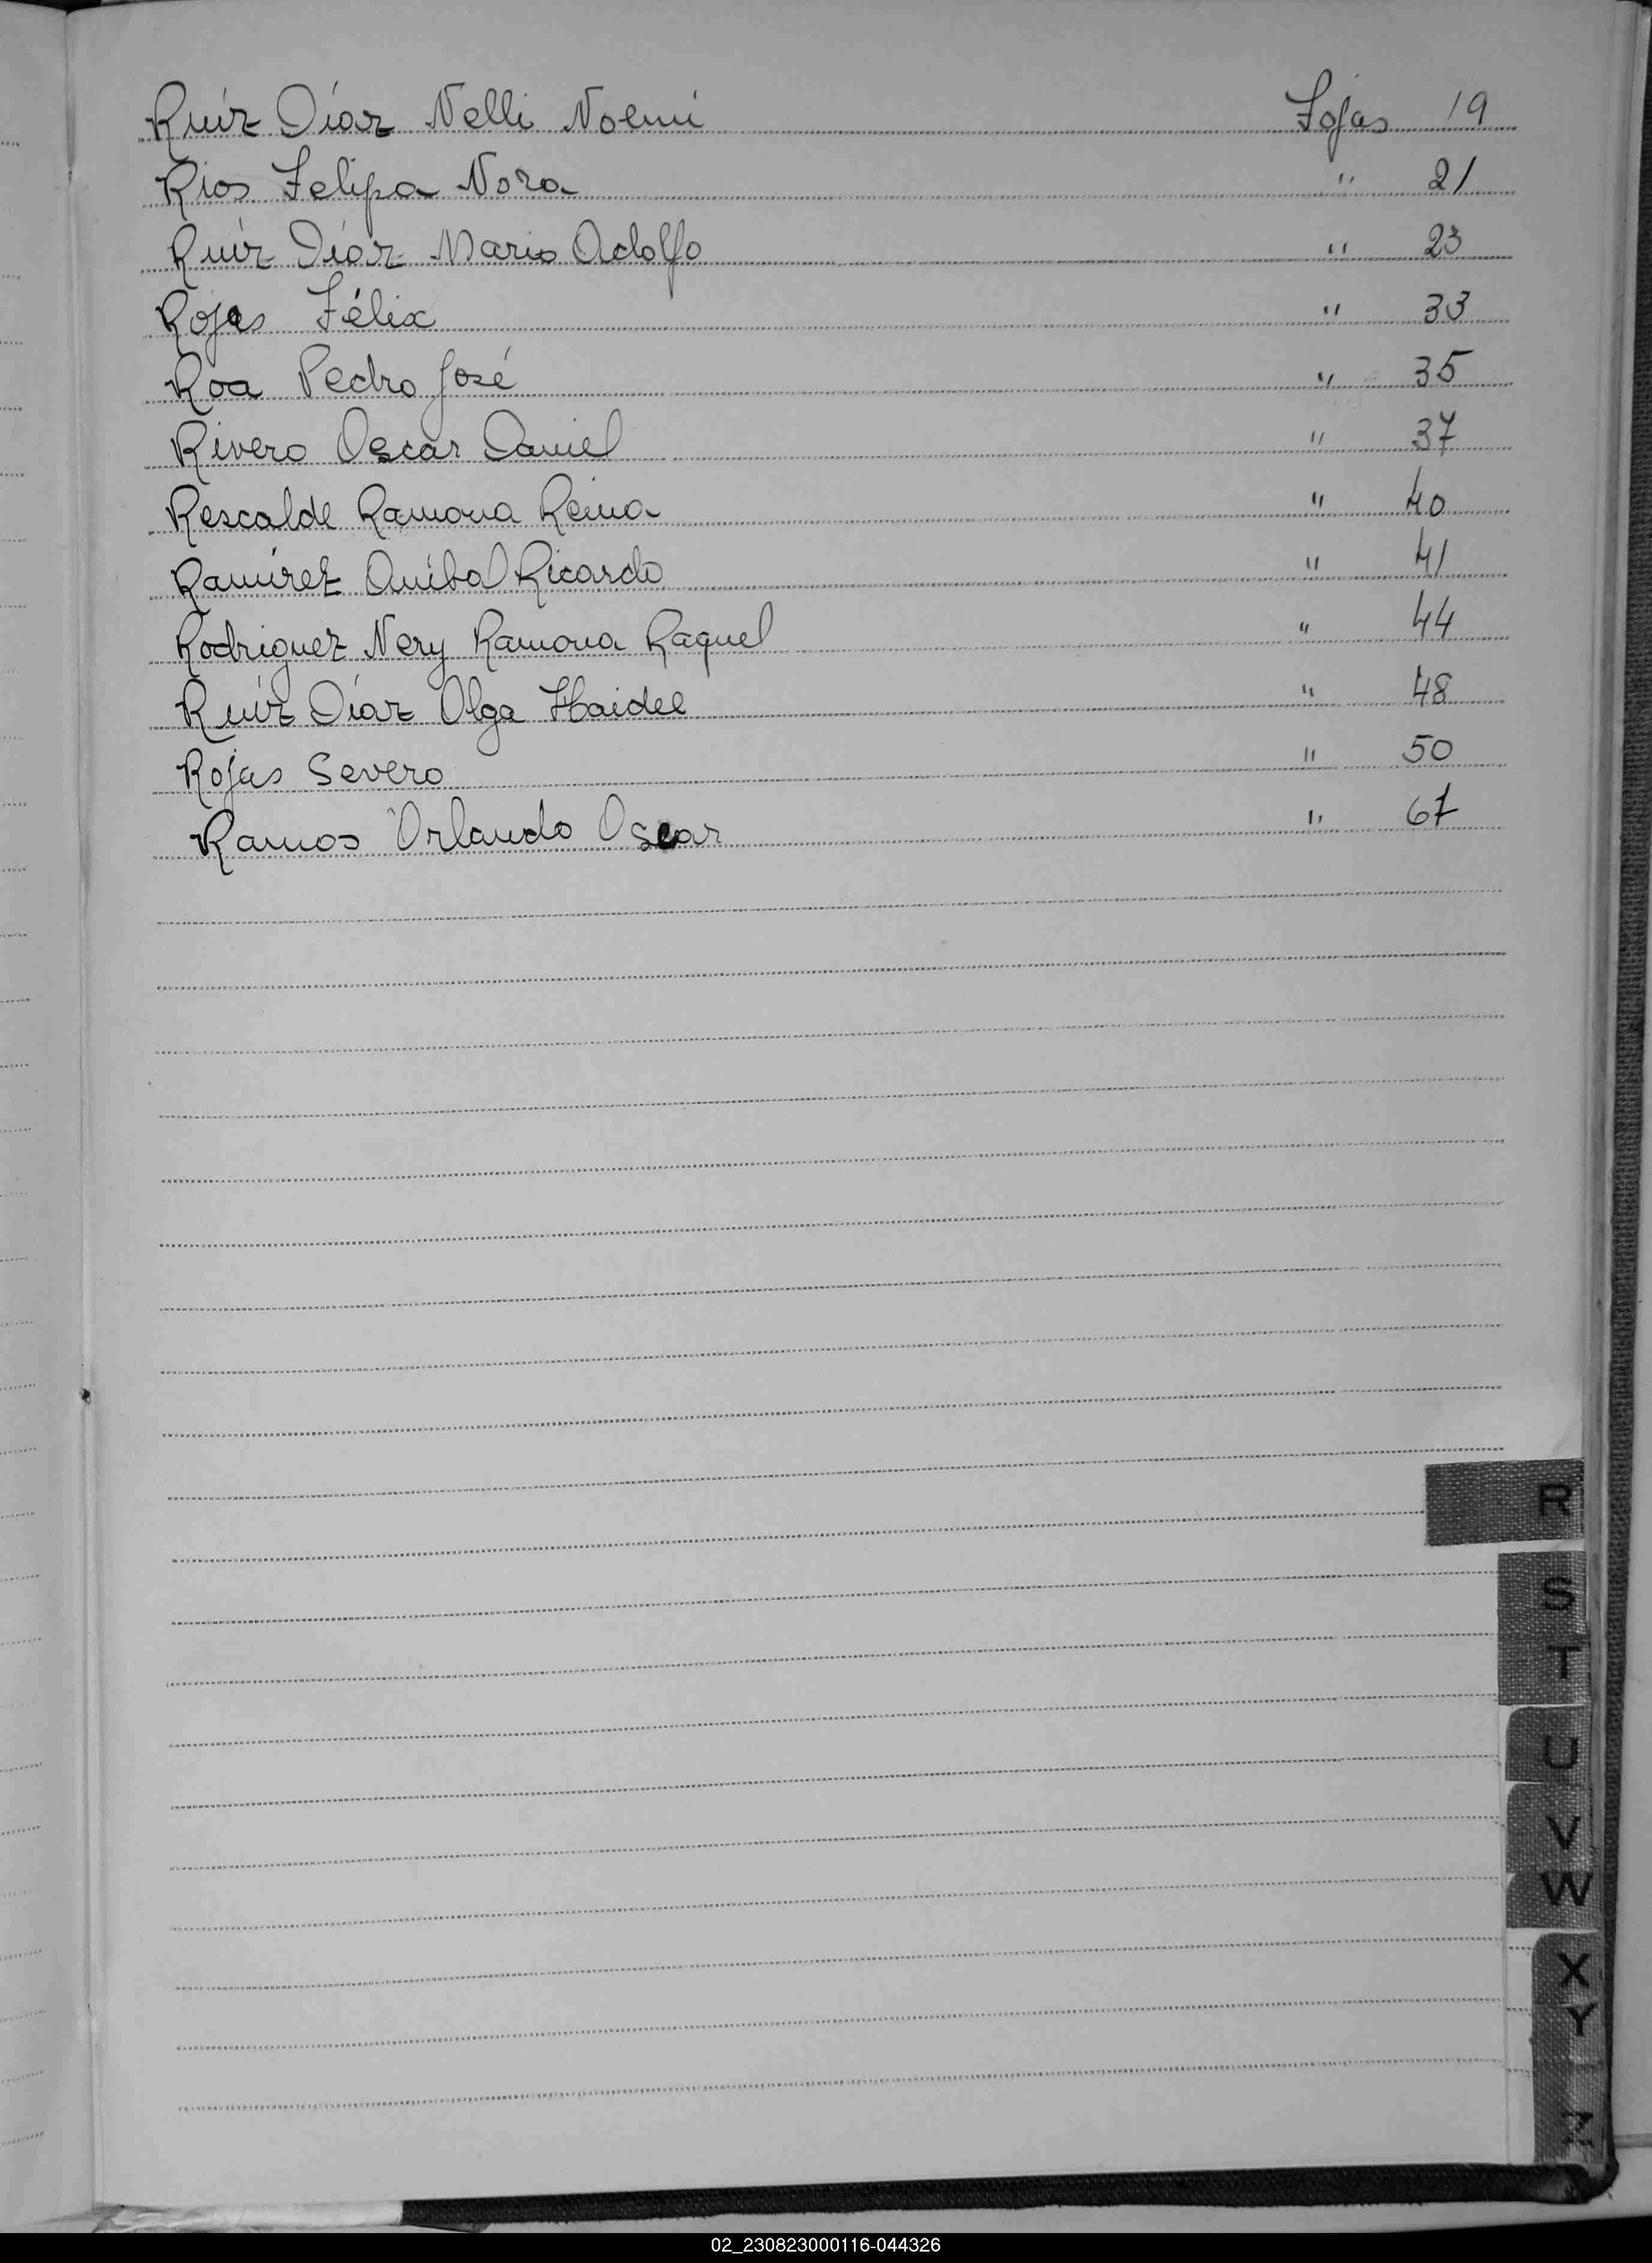 Ruíz Díaz Nelli Noemí Fojas 19
Rios Felipa Nora " 21
Ruíz Díaz Mario Adolfo " 23
Rojas Félix " 33
Roa Pedro José " 35
Rivero Oscar Daniel " 37
Rescalde Ramona Reina " 40
Ramírez Aníbal Ricardo " 41
Rodriguez Nery Ramona Raquel " 44
Ruíz Díaz Olga Haidee " 48
Rojas Severo " 50
Ramos Orlando Oscar " 67
R
S
T
U
V
W
X
Y
Z
02_230823000116-044326